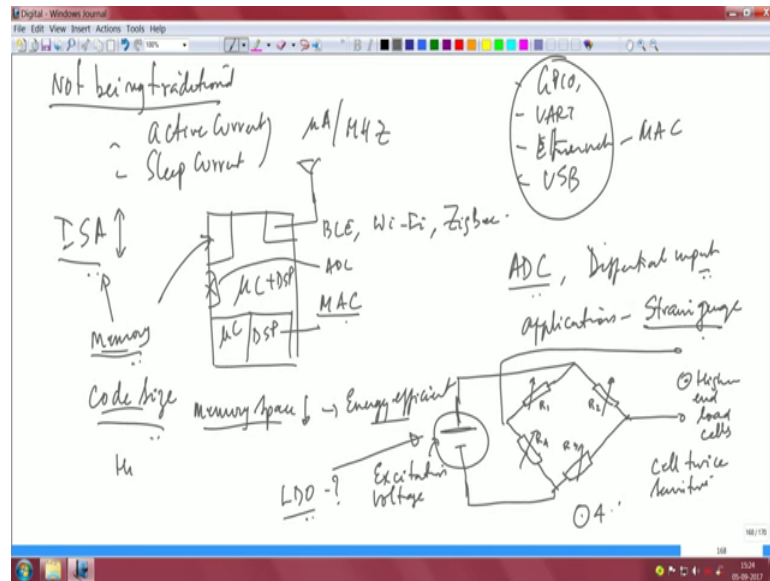 Digital - Windows Journal
File Edit View Insert Actions Tools Help
100%
Not being traditional
- Active Current
- Sleep Current
μA/MHZ
- GPIO,
- UART
- Ethernet - MAC
- USB
ISA
BLE, Wi-Fi, Zigbee.
ADC
μC+DSP
MAC
μC DSP
Memory
ADC, Differential input
applications - Strain gauge
Code Size
Memory Space ↓ → Energy efficient
R1
R2
R4
R3
Higher
end
load
cells
Excitation
Voltage
LDO - ?
Cell twice
4
168/170
168
15:24
05-09-2017